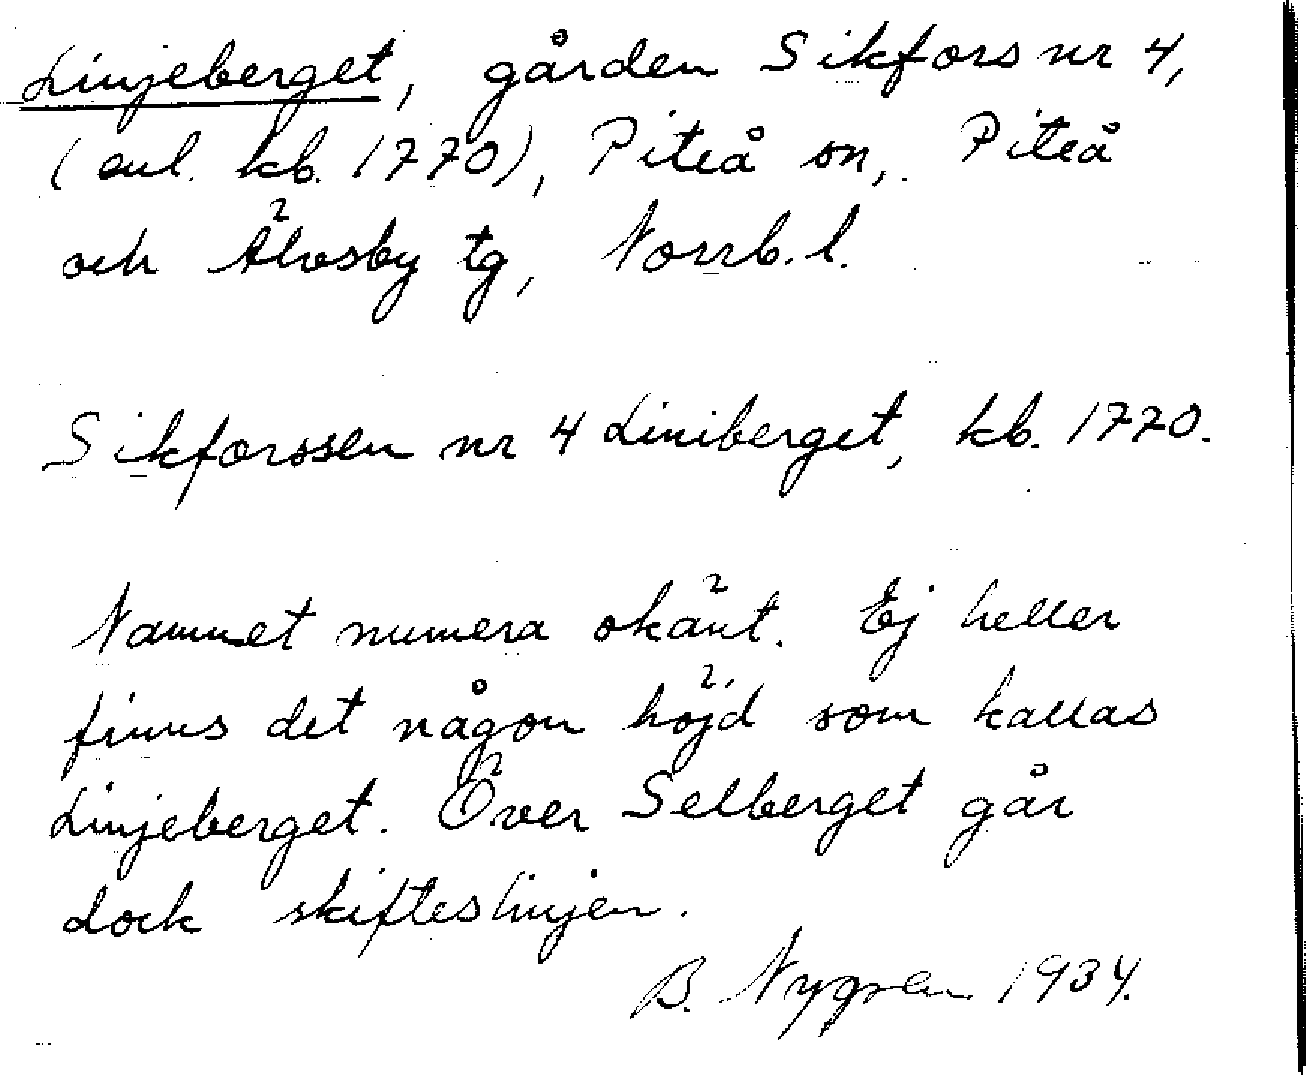 Linjeberget, gården Sikfors nr 4,
(enl. kb. 1770), Piteå sn, Piteå
och Älvsby tg, Norrb. l.
Sikforssen nr 4 Liniberget, kb. 1770.
Namnet numera okänt. Ej heller
finns det någon höjd som kallas
Linjeberget. Över Selberget går
dock skifteslinjen.
B. Nygren 1934.